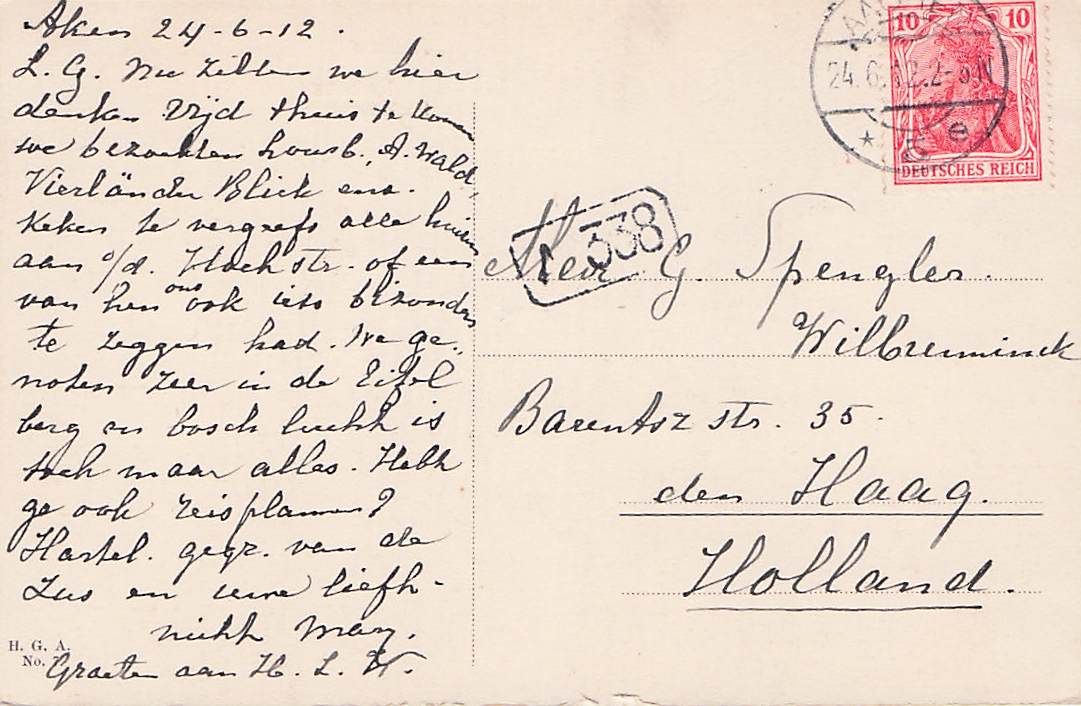 Aken 24-6-12.
L. G. Nu zitten we hier
denken Vrijd thuis te komen
we bezochten Housb., A. Wald,
Vierländer Blick enz.
Keken te vergeefs alle huizen
aan o/d. Hochstr. of een
van hen ons ook iets bizonders
te zeggen had. We ge-
noten zeer in de Eifel
berg en bosch lucht is
toch maar alles. Hebt
ge ook reisplannen?
Hartel. gegr. van de
Zus en uwe liefh-
nicht Mary.
Groeten aan H. L. W.
H. G. A.
No.
10 10
DEUTSCHES REICH
AACHEN
24.6.12.2-3N
* 5 e
1 338
Heer G. Spengler.
Wilbrenninck
Barentsz str. 35.
den Haag.
Holland.